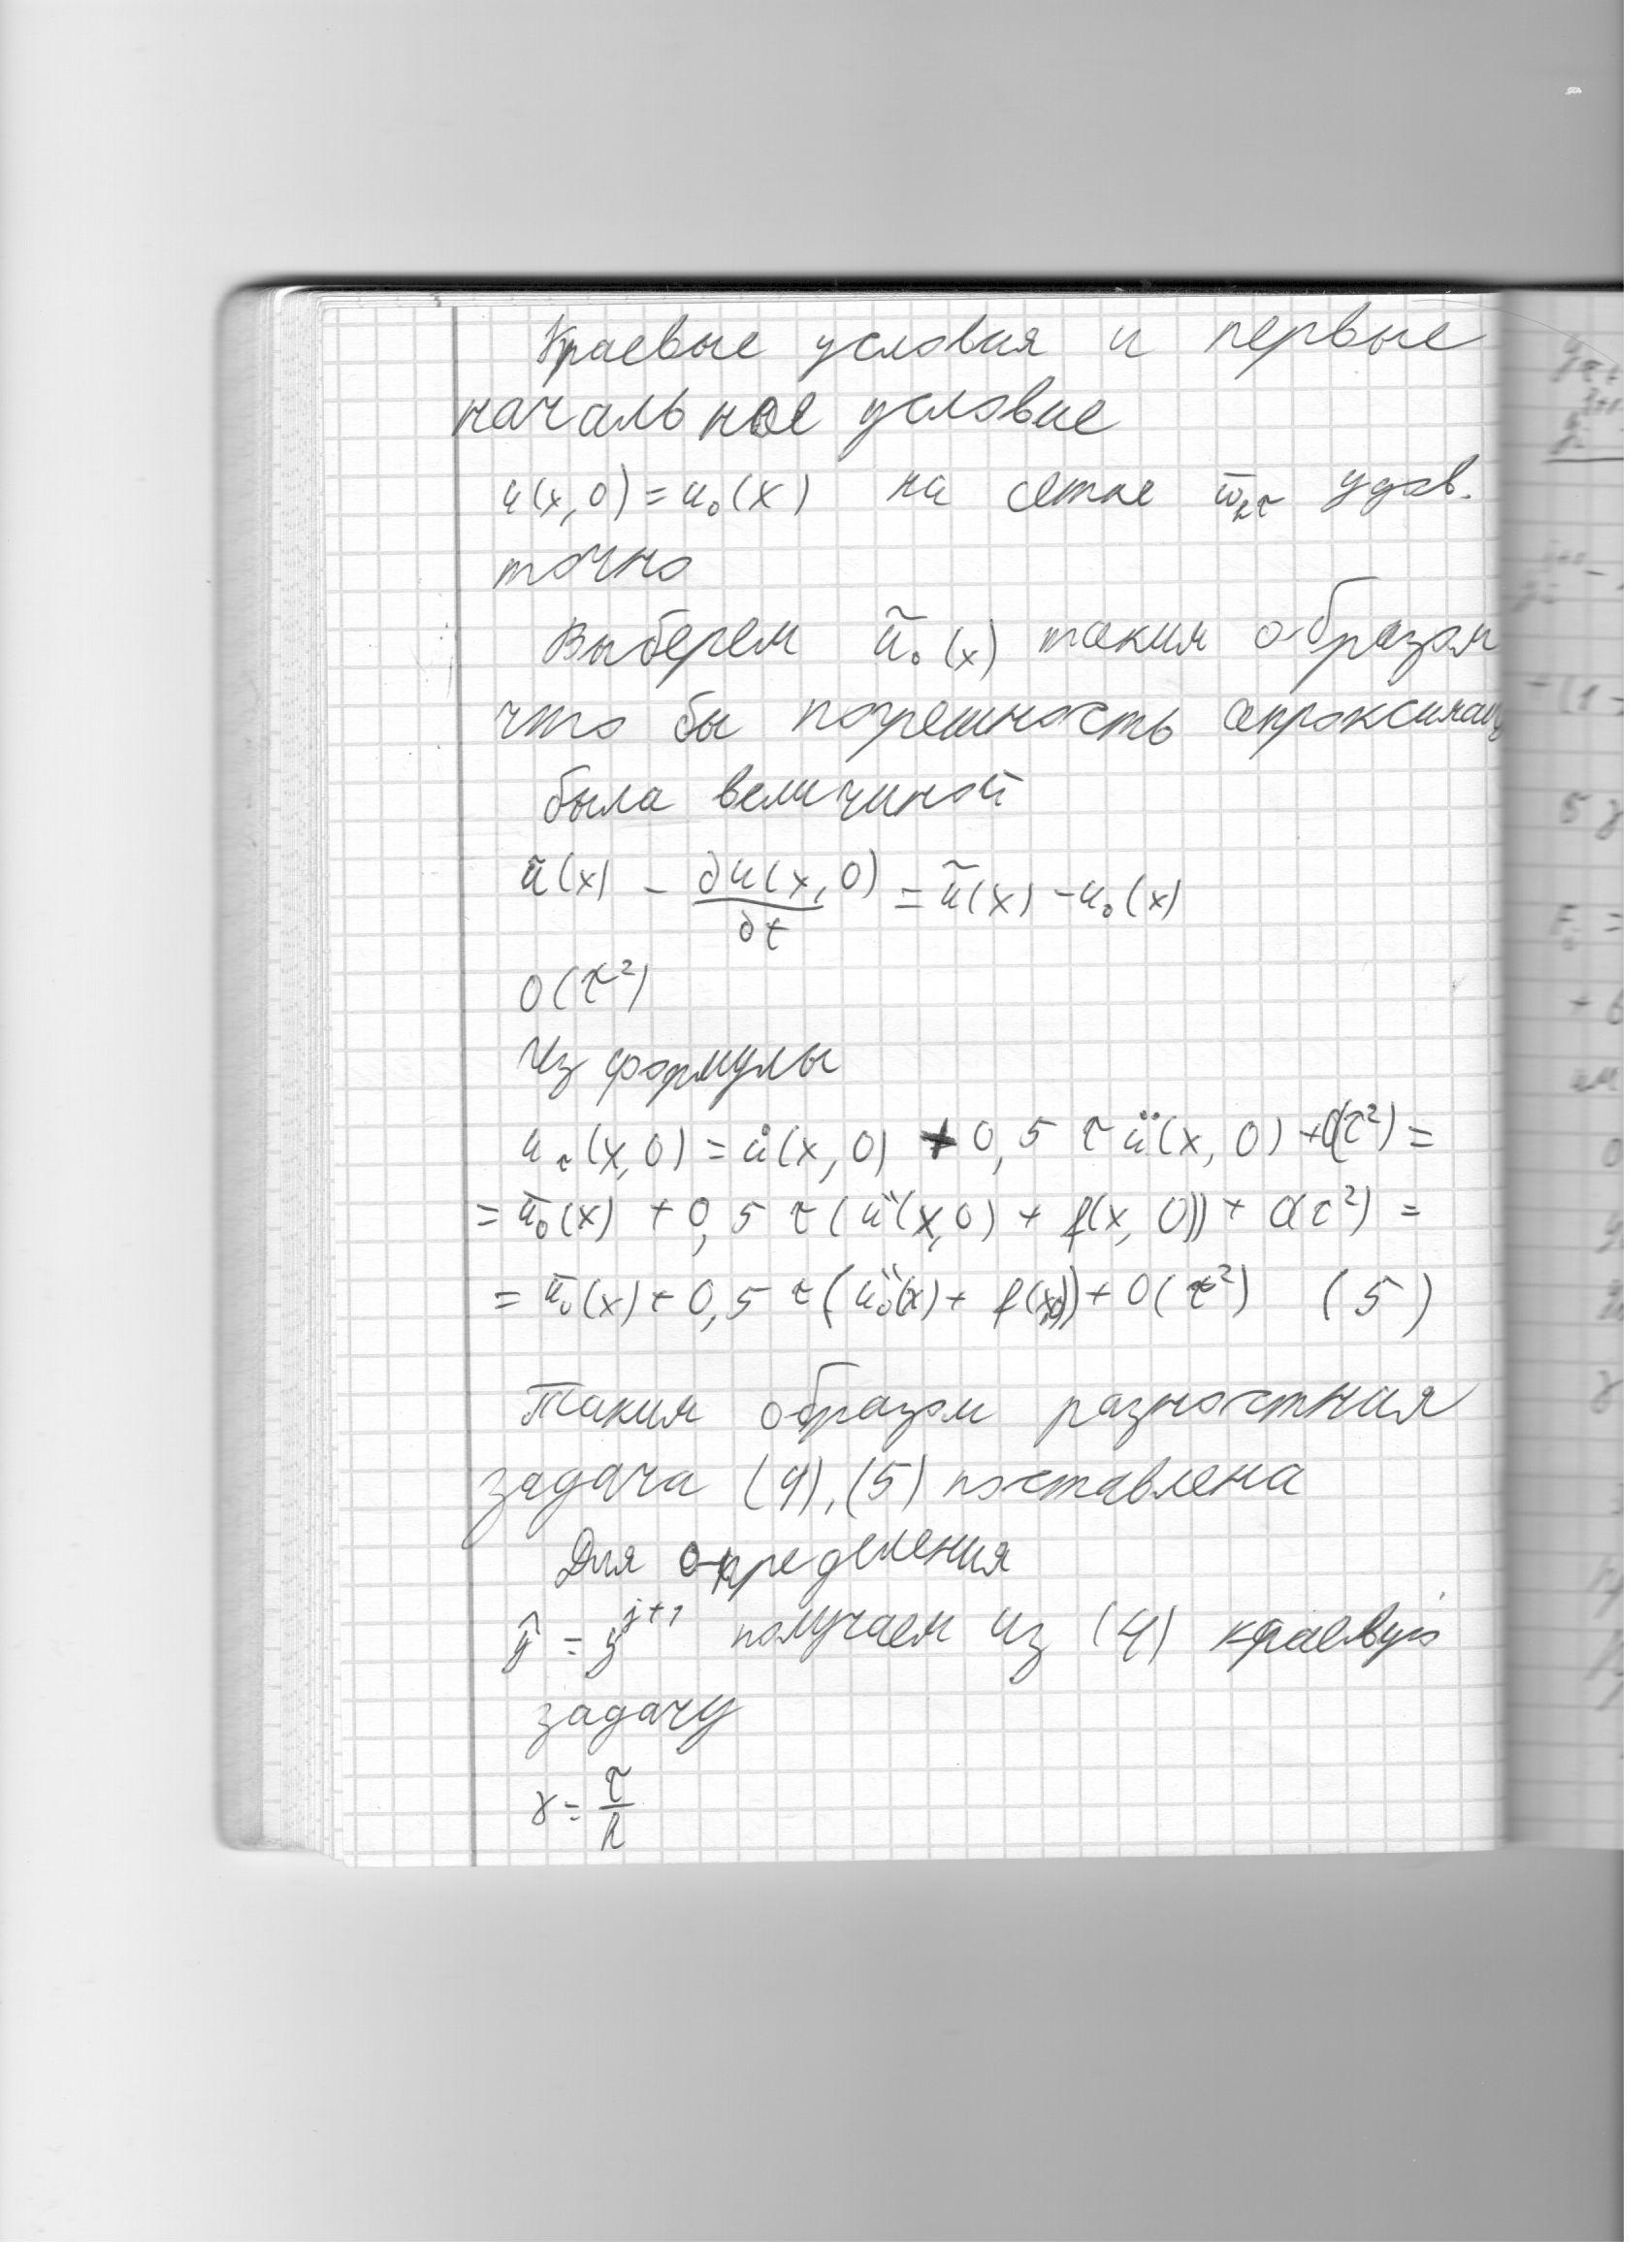 Краевые условия и первые
начальное условие
u(x,0) = u₀(x) на сетке ω̄ₕτ удов.
точно
Выберем ũ₀(x) таким образом
что бы погрешность апроксимац
была величиной
ũ(x) - ∂u(x,0)/∂t = ũ(x) - u₀(x)
O(τ²)
Из формулы
uτ(x,0) = u̇(x,0) + 0,5 τ ü(x,0) + O(τ²) =
= ū₀(x) + 0,5 τ (u″(x,0) + f(x,0)) + O(τ²) =
= ū₀(x) + 0,5 τ (u₀″(x) + f(x,0)) + O(τ²) (5)
Таким образом разностная
задача (4), (5) поставлена
Для определения
ŷ = yʲ⁺¹ получаем из (4) краевую
задачу
γ = τ/h